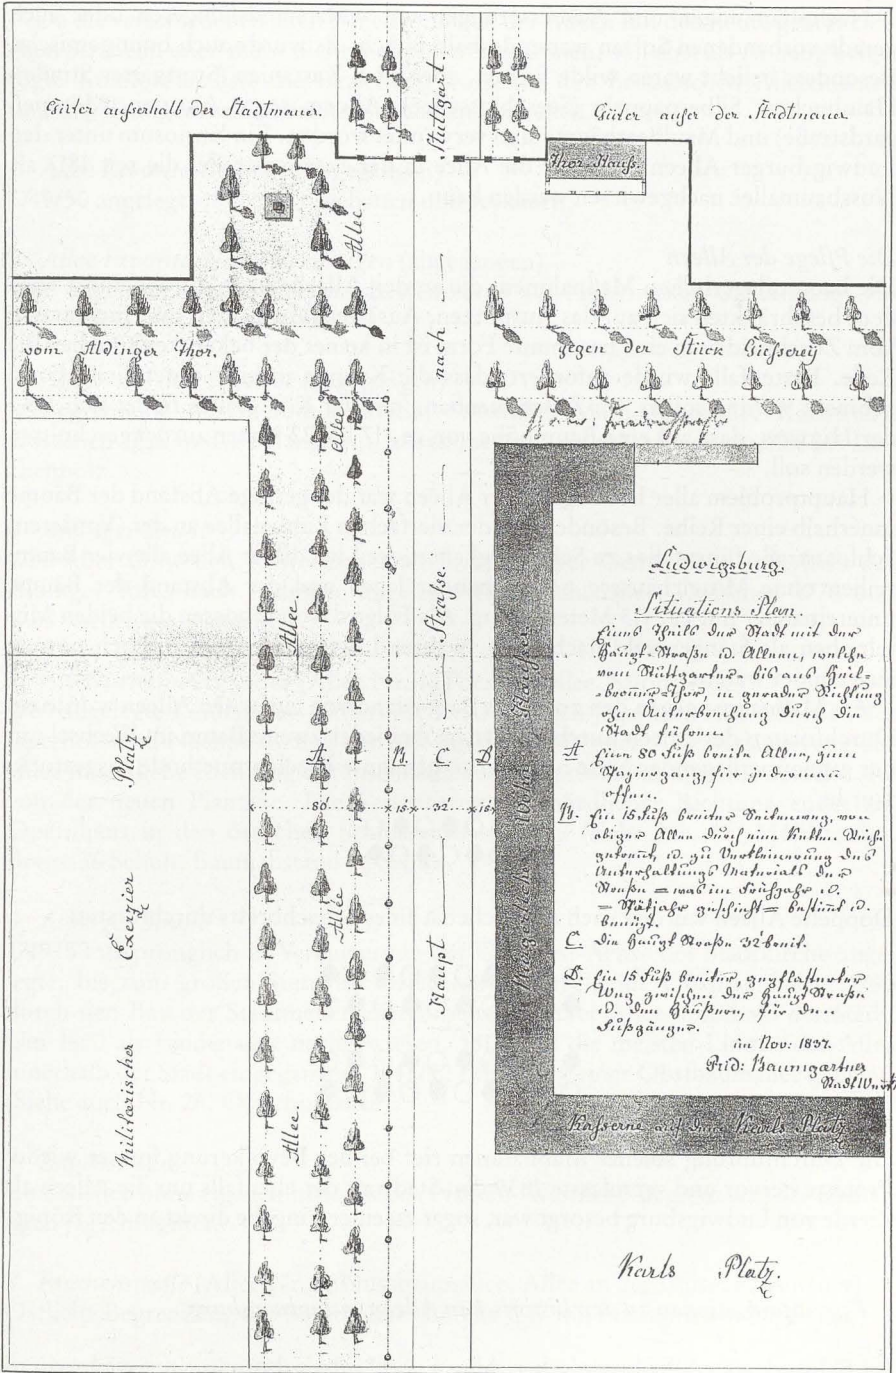 Stuttgart.
Güter ausserhalb der Stadtmauer.
Güter ausser der Stadtmauer
Thor Hauß.
Allee
nach
vom Aldinger Thor.
gegen der Stück Giesserey
Allee
Straße
Allee
Bürgerliche Wohn Häuser.
Ludwigsburg.
Situations Plan.
Eines Theils der Stadt mit der
Haupt-Straße u. Alleen, welche
vom Stuttgarter- bis ans Heil-
-bronner-Thor, in gerader Richtung
ohne Unterbrechung durch die
Stadt führen.
A Eine 80 Fuß breite Allee, zum
Spaziergang, für jedermann
offen.
B. Ein 15 Fuß breiter Seitenweg, von
obiger Allee durch eine Reihe
getrennt, u. zu Verkleinerung des
Unterhaltungs Materials der
Straße = was im Frühjahr u.
= Spätjahr geschieht = bestimt u.
benüzt.
C. die Haupt Straße 32' breit.
D. Ein 15 Fuß breiter, gepflasterter
Weg zwischen der Haupt Straße
u. den Häußern, für den
Fußgänger.
im Nov: 1837.
Frid: Baumgartner
A B. C. D.
80' 15 32' 15'
Allée
Haupt
Allee.
Militärischer Exerzier Platz.
Kasserne auf dem Karls Platz
Karls Platz.